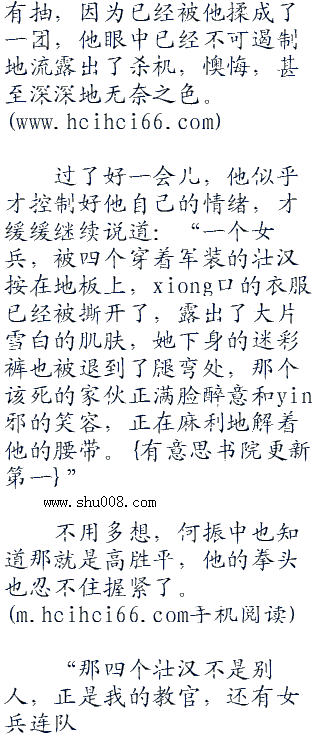 有抽，因为已经被他揉成了
一团，他眼中已经不可遏制
地流露出了杀机，懊悔，甚
至深深地无奈之色。
(www.hcihci66.com)
过了好一会儿，他似乎
才控制好他自己的情绪，才
缓缓继续说道：“一个女
兵，被四个穿着军装的壮汉
按在地板上，xiong口的衣服
已经被撕开了，露出了大片
雪白的肌肤，她下身的迷彩
裤也被退到了腿弯处，那个
该死的家伙正满脸醉意和yin
邪的笑容，正在麻利地解着
他的腰带。{有意思书院更新
第一}”
www.shu008.com
不用多想，何振中也知
道那就是高胜平，他的拳头
也忍不住握紧了。
(m.hcihci66.com手机阅读)
“那四个壮汉不是别
人，正是我的教官，还有女
兵连队